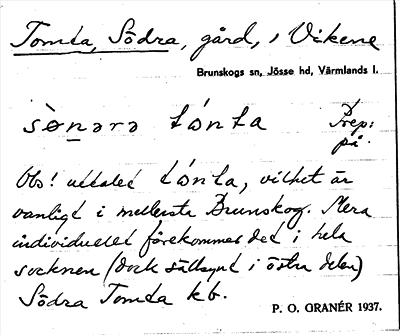 Tomta, Södra, gård, i Vikene
Brunskogs sn, Jösse hd, Värmlands l.
sǿnərə tómta Prep:
på.
Obs! uttalet tómta, vilket är
vanligt i mellersta Brunskog. Mera
individuellt förekommer det i hela
socknen (dock sällsynt i östra delen)
Södra Tomta kb.
P. O. GRANÉR 1937.